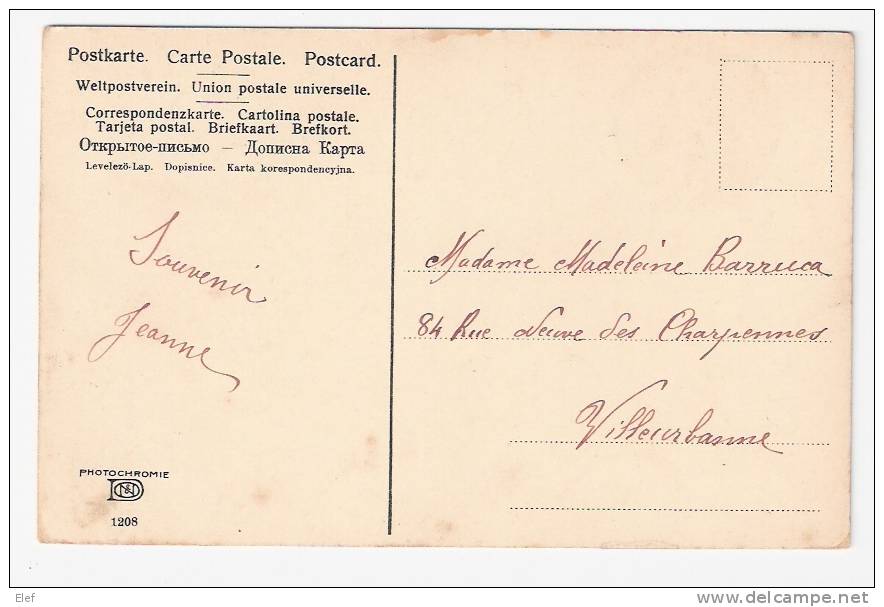 Postkarte. Carte Postale. Postcard.
Weltpostverein. Union postale universelle.
Correspondenzkarte. Cartolina postale.
Tarjeta postal. Briefkaart. Brefkort.
Открытое-письмо — Дописна Карта
Levelező-Lap. Dopisnice. Karta korespondencyjna.
Souvenir
Jeanne
Madame Madeleine Barruca
84 Rue Neuve des Charpennes
Villeurbanne
PHOTOCHROMIE
1208
Elef
delcampe.net